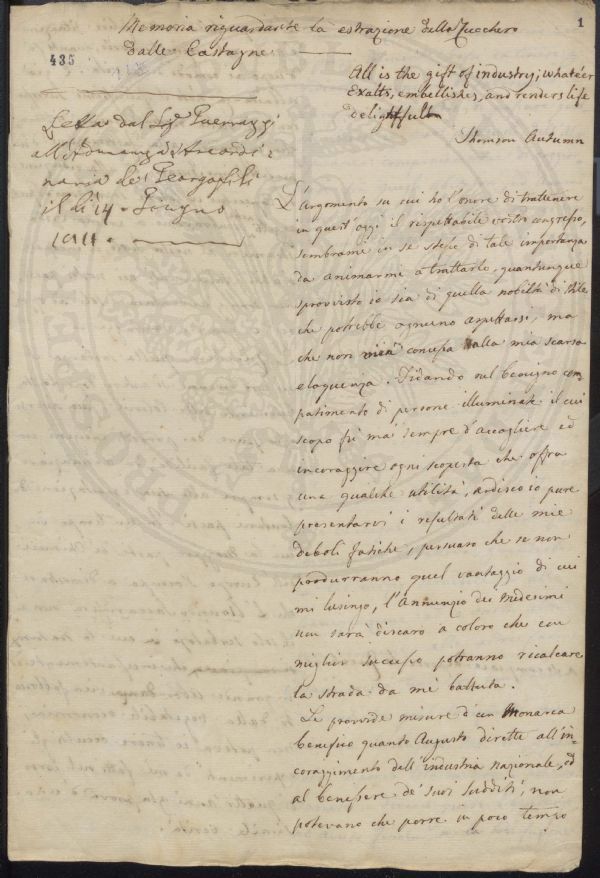 1
Memoria riguardante la estrazione dello Zucchero
dalle Castagne.
435
All is the gift of industry; whate'er
Exalts, embellishes, and renders life
delightfull
Thomson Autumn
Letta dal Sig. Guerrazzi
all'Adunanza
de' Georgofili
il dì 14. Giugno
L'argomento su cui ho l'onore di trattenere
in quest'oggi il rispettabile vostro congresso,
sembrami in se stesso di tale importanza
da animarmi a trattarlo, quantunque
sprovvisto io sia di quella nobiltà di stile
che potrebbe ognuno aspettarsi, ma
che non vien concessa dalla mia scarsa
eloquenza. Fidando nel benigno com-
patimento di persone illuminate il cui
scopo fù mai sempre d'accogliere ed
incoraggire ogni scoperta che offra
una qualche utilità, ardisco io pure
presentarvi i resultati delle mie
deboli fatiche, persuaso che se non
produrranno quel vantaggio di cui
mi lusingo, l'Annunzio dei Medesimi
non sarà discaro a coloro che con
miglior successo potranno ricalcare
la strada da me battuta.
Le provvide misure d'un Monarca
benefico quanto Augusto dirette all'in-
coraggimento dell'industria nazionale, ed
al benessere de' suoi sudditi, non
potevano che porre in poco tempo